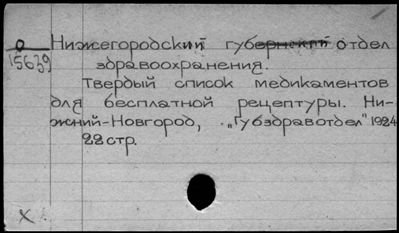 О
15639
Нижегородский губернский отдел
здравоохранения.
Твердый список медикаментов
для бесплатной рецептуры. Ни-
жний-Новгород, "Губздравотдел" 1924
22 стр.
X